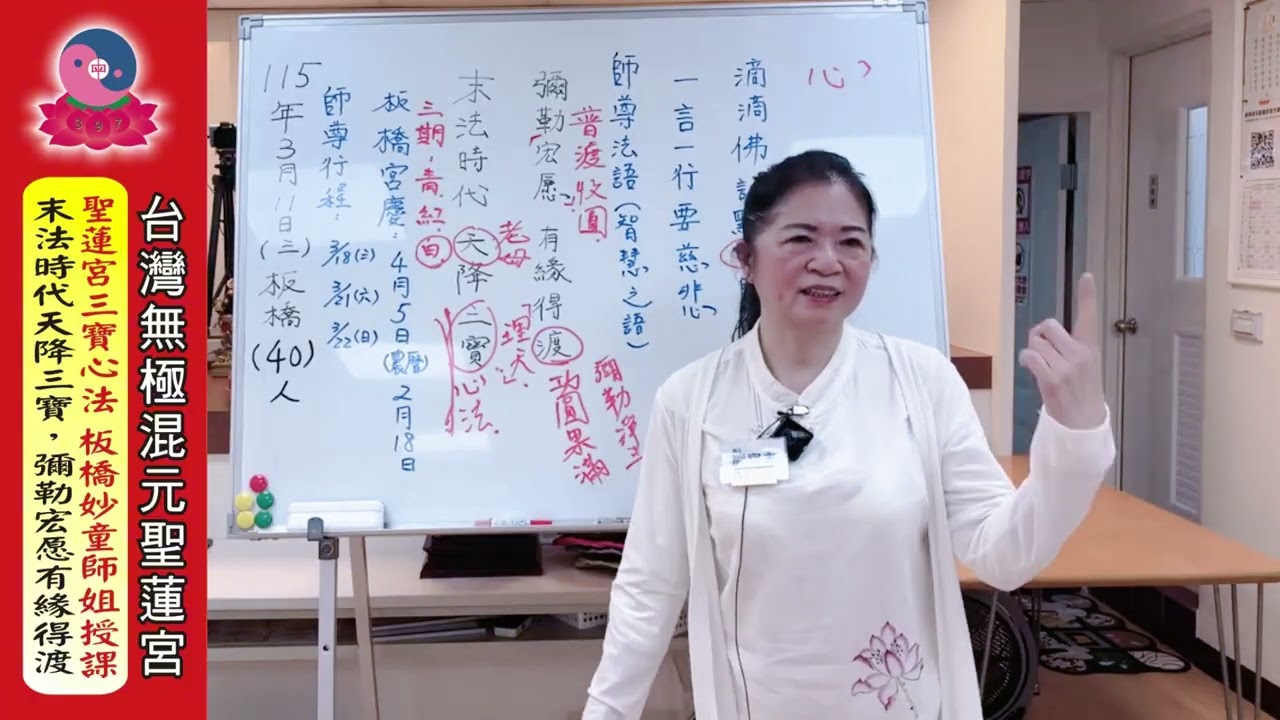 台灣無極混元聖蓮宮
聖蓮宮三寶心法 板橋妙童師姐授課
末法時代天降三寶，彌勒宏愿有緣得渡
397
心
滴滴佛
一言一行要慈悲心
師尊法語(智慧之語)
普渡收圓
彌勒「宏愿」有緣得渡
功圓果滿
彌勒淨土
末法時代天降三寶心法
老母
「理天」
三期：青、紅、白
板橋宮慶：4月5日(農曆)2月18日
師尊行程：3/18(三) 3/21(六) 3/22(日)
115年3月11日(三)板橋(40)人